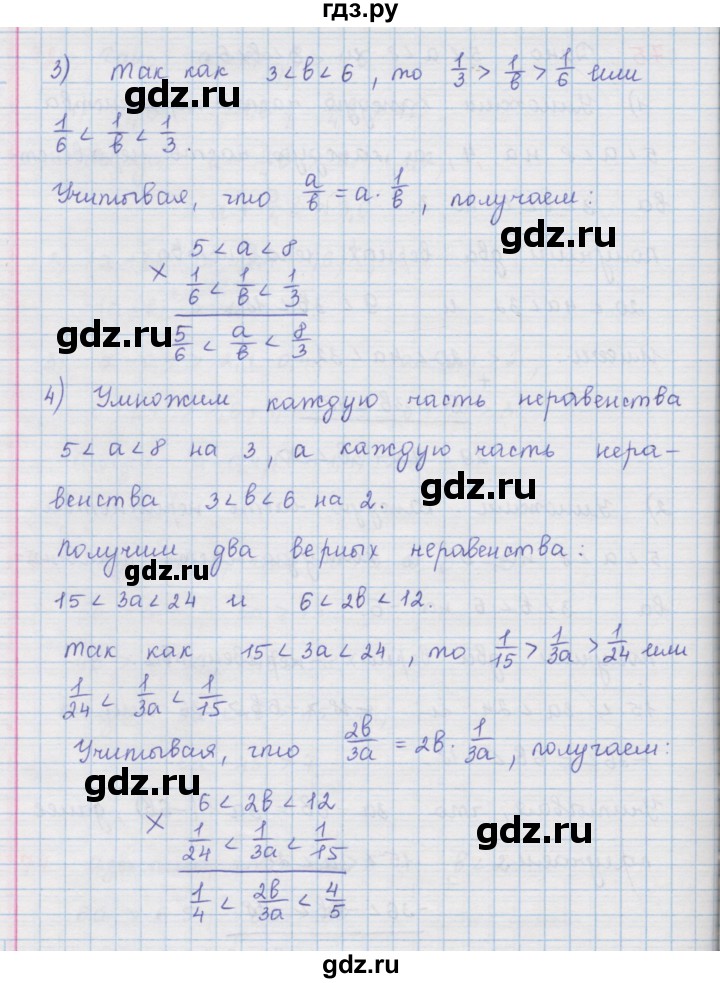 гдз.ру
3) Так как 3 < в < 6 , то 1/3 > 1/в > 1/6 или
1/6 < 1/в < 1/3 .
Учитывая, что а/в = а · 1/в , получаем :
gdz.ru
5 < а < 8
× 1/6 < 1/в < 1/3
gdz.ru
5/6 < а/в < 8/3
gdz.ru
4) Умножим каждую часть неравенства
5 < а < 8 на 3 , а каждую часть нера-
венства 3 < в < 6 на 2 .
gdz.ru
Получим два верных неравенства :
gdz.ru
15 < 3а < 24 и 6 < 2в < 12 .
Так как 15 < 3а < 24 , то 1/15 > 1/3а > 1/24 или
gdz.ru
1/24 < 1/3а < 1/15
Учитывая, что 2в/3а = 2в · 1/3а , получаем :
gdz.ru
6 < 2в < 12
× 1/24 < 1/3а < 1/15
gdz.ru
1/4 < 2в/3а < 4/5
gdz.ru